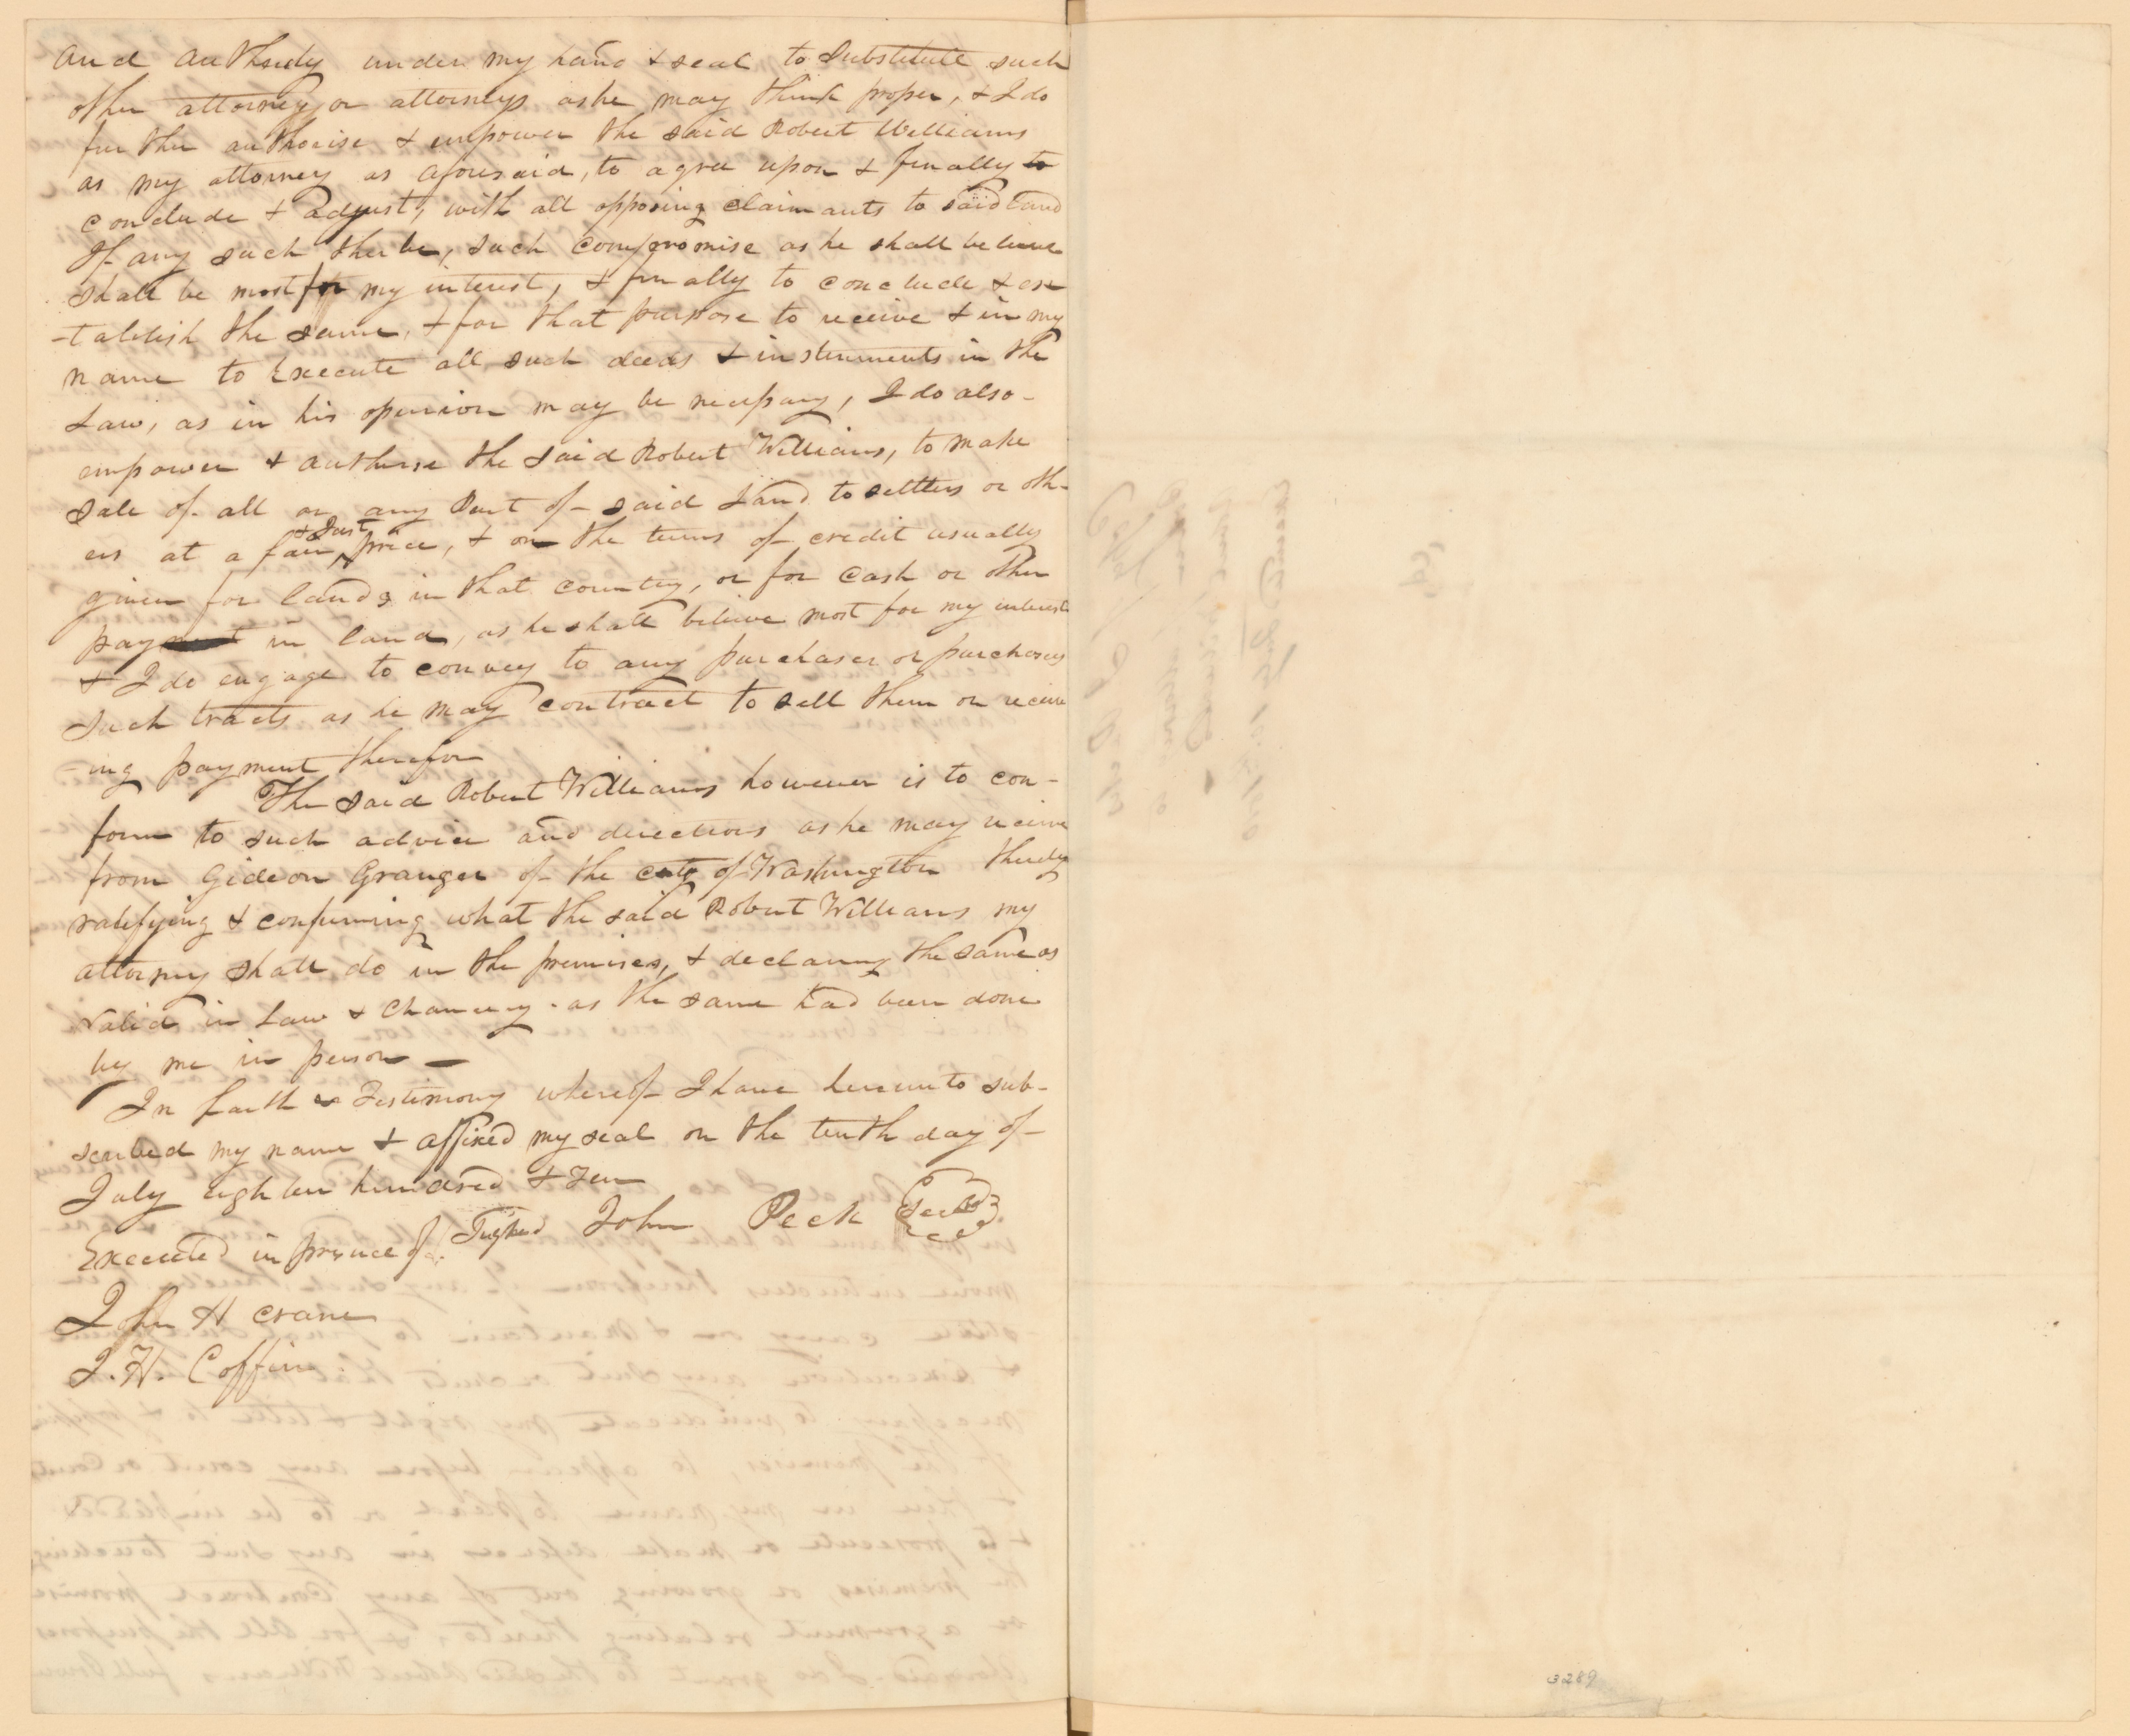 and authority under my hand & seal to substitute such
other attorney or attorneys as he may think proper, & I do
further authorise & empower the said Robert Williams
as my attorney as aforesaid, to agree upon & finally to
conclude & adjust, with all opposing claimants to said Land
If any such there be, such compromise as he shall believe
shall be most for my interest, & finally to conclude & es-
-tablish the same, & for that purpose to receive & in my
name to Execute all such deeds & instruments in the
Law, as in his opinion may be necessary, I do also-
empower & authorise the said Robert Williams, to make
sale of all or any Part of said Land to settlers or oth-
ers at a fair & Just price, & on the terms of credit usually
given for lands in that country, or for cash or other
payment in land, as he shall believe most for my interest
& I do engage to convey to any purchaser or purchasers
such tracts as he may contract to sell them on receiv
-ing payment therefor
The said Robert Williams however is to con-
form to such advice and directions as he may receive
from Gideon Granger of the city of Washington thereby
ratifying & confirming what the said Robert Williams my
attorney shall do in the premises, & declaring the same as
valid in Law & Chancery as the same had been done
by me in person
In faith & Testimony whereof I have hereunto sub-
scribed my name & affixed my seal on the tenth day of
July eighteen hundred & Ten
Executed in presence of Signed John Peck Seal
John H Crane
J. H. Coffin
3289